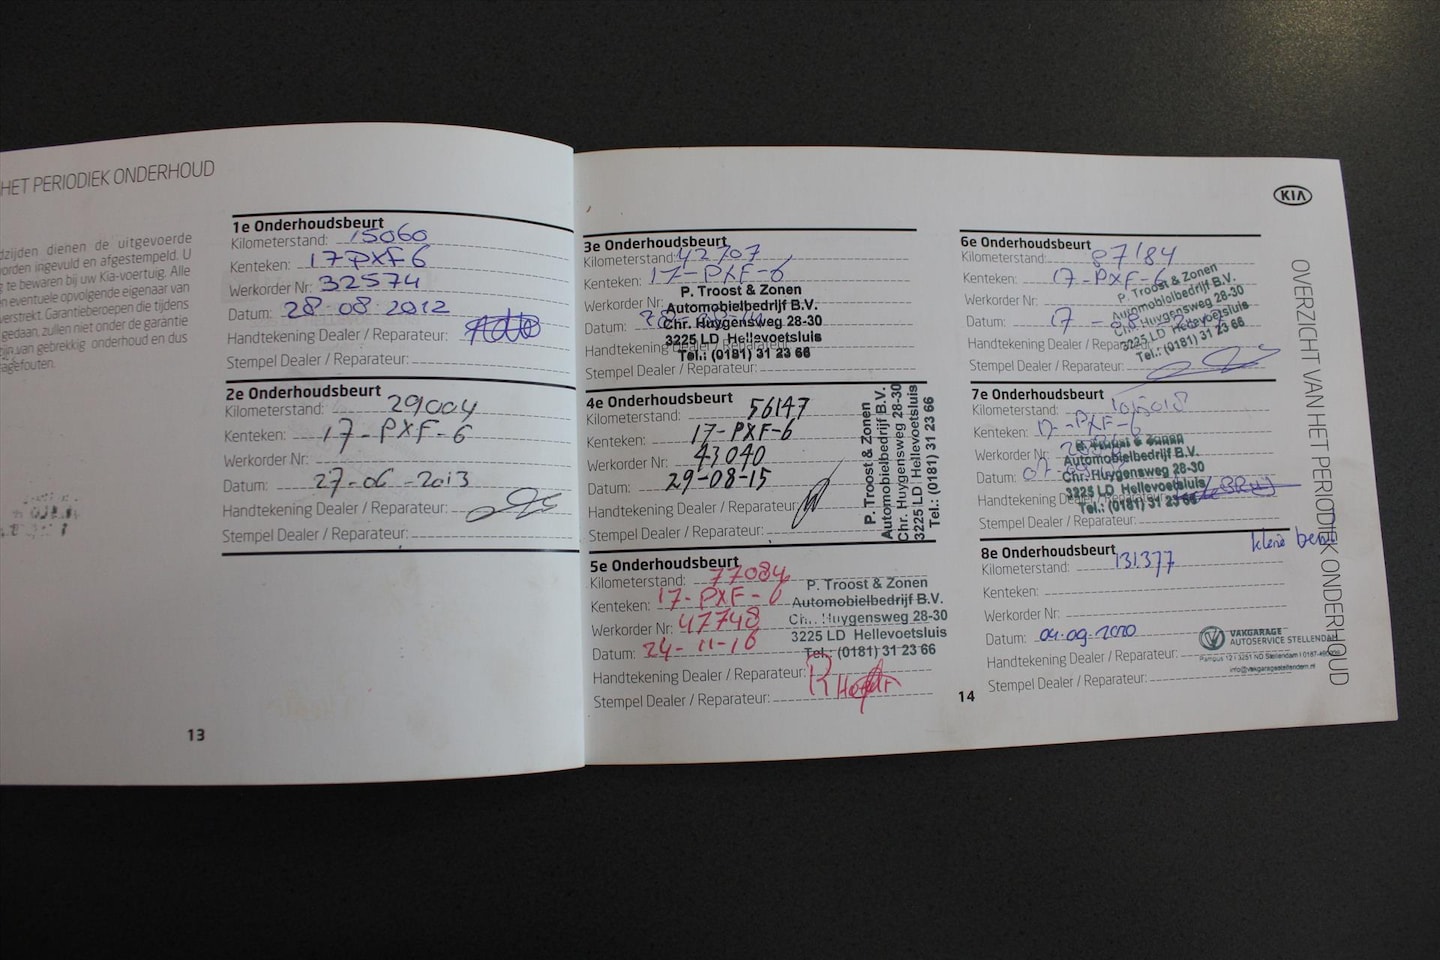 HET PERIODIEK ONDERHOUD
dzijden dienen de uitgevoerde
orden ingevuld en afgestempeld. U
te bewaren bij uw Kia-voertuig. Alle
n eventuele opvolgende eigenaar van
verstrekt. Garantieberoepen die tijdens
gedaan, zullen niet onder de garantie
zijn van gebrekkig onderhoud en dus
agefouten.
1e Onderhoudsbeurt
Kilometerstand: 15060
Kenteken: 17 PXF 6
Werkorder Nr: 32574
Datum: 28-08-2012
Handtekening Dealer / Reparateur:
Stempel Dealer / Reparateur:
2e Onderhoudsbeurt
Kilometerstand: 29004
Kenteken: 17-PXF-6
Werkorder Nr:
Datum: 27-06-2013
Handtekening Dealer / Reparateur:
Stempel Dealer / Reparateur:
13
3e Onderhoudsbeurt
Kilometerstand: 42707
Kenteken: 17-PXF-6
Werkorder Nr:
Datum:
Handtekening Dealer / Reparateur:
Stempel Dealer / Reparateur:
P. Troost & Zonen
Automobielbedrijf B.V.
Chr. Huygensweg 28-30
3225 LD Hellevoetsluis
Tel.: (0181) 31 23 66
4e Onderhoudsbeurt
Kilometerstand: 56147
Kenteken: 17-PXF-6
Werkorder Nr: 43040
Datum: 29-08-15
Handtekening Dealer / Reparateur:
Stempel Dealer / Reparateur:
P. Troost & Zonen
Automobielbedrijf B.V.
Chr. Huygensweg 28-30
3225 LD Hellevoetsluis
Tel.: (0181) 31 23 66
5e Onderhoudsbeurt
Kilometerstand: 77084
Kenteken: 17-PXF-6
Werkorder Nr: 47748
Datum: 24-11-16
Handtekening Dealer / Reparateur:
Stempel Dealer / Reparateur:
P. Troost & Zonen
Automobielbedrijf B.V.
Chr. Huygensweg 28-30
3225 LD Hellevoetsluis
Tel.: (0181) 31 23 66
KIA
6e Onderhoudsbeurt
Kilometerstand: 87184
Kenteken: 17-PXF-6
Werkorder Nr:
Datum: 17
Handtekening Dealer / Reparateur:
Stempel Dealer / Reparateur:
P. Troost & Zonen
Automobielbedrijf B.V.
Chr. Huygensweg 28-30
3225 LD Hellevoetsluis
Tel.: (0181) 31 23 66
7e Onderhoudsbeurt
Kilometerstand:
Kenteken: 17-PXF-6
Werkorder Nr:
Datum:
Handtekening Dealer / Reparateur:
Stempel Dealer / Reparateur:
P. Troost & Zonen
Automobielbedrijf B.V.
Chr. Huygensweg 28-30
3225 LD Hellevoetsluis
Tel.: (0181) 31 23 66
8e Onderhoudsbeurt
Kilometerstand: 131.377
Kenteken:
Werkorder Nr:
Datum: 04-09-2020
Handtekening Dealer / Reparateur:
Stempel Dealer / Reparateur:
VAKGARAGE
AUTOSERVICE STELLENDAM
info@vakgaragestellendam.nl
14
OVERZICHT VAN HET PERIODIEK ONDERHOUD